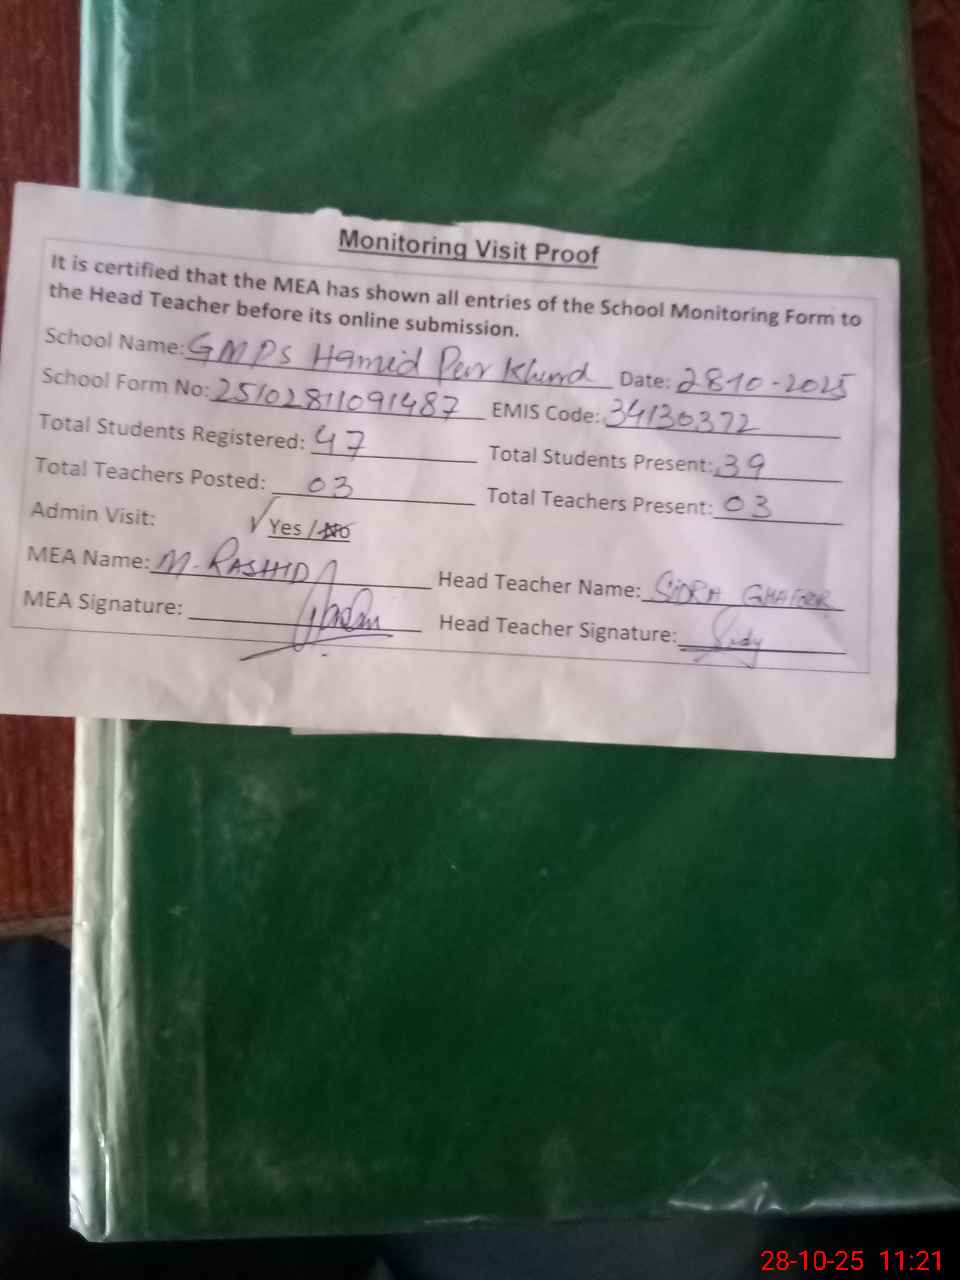 Monitoring Visit Proof
It is certified that the MEA has shown all entries of the School Monitoring Form to
the Head Teacher before its online submission.
School Name: GMPS Hamid Pur Khurd Date: 28-10-2025
School Form No: 25102811091487 EMIS Code: 34130372
Total Students Registered: 47 Total Students Present: 39
Total Teachers Posted: 03 Total Teachers Present: 03
Admin Visit: √ Yes / No
MEA Name: M. RASHID Head Teacher Name: SIDRA GHAFOOR
MEA Signature: Head Teacher Signature:
28-10-25 11:21